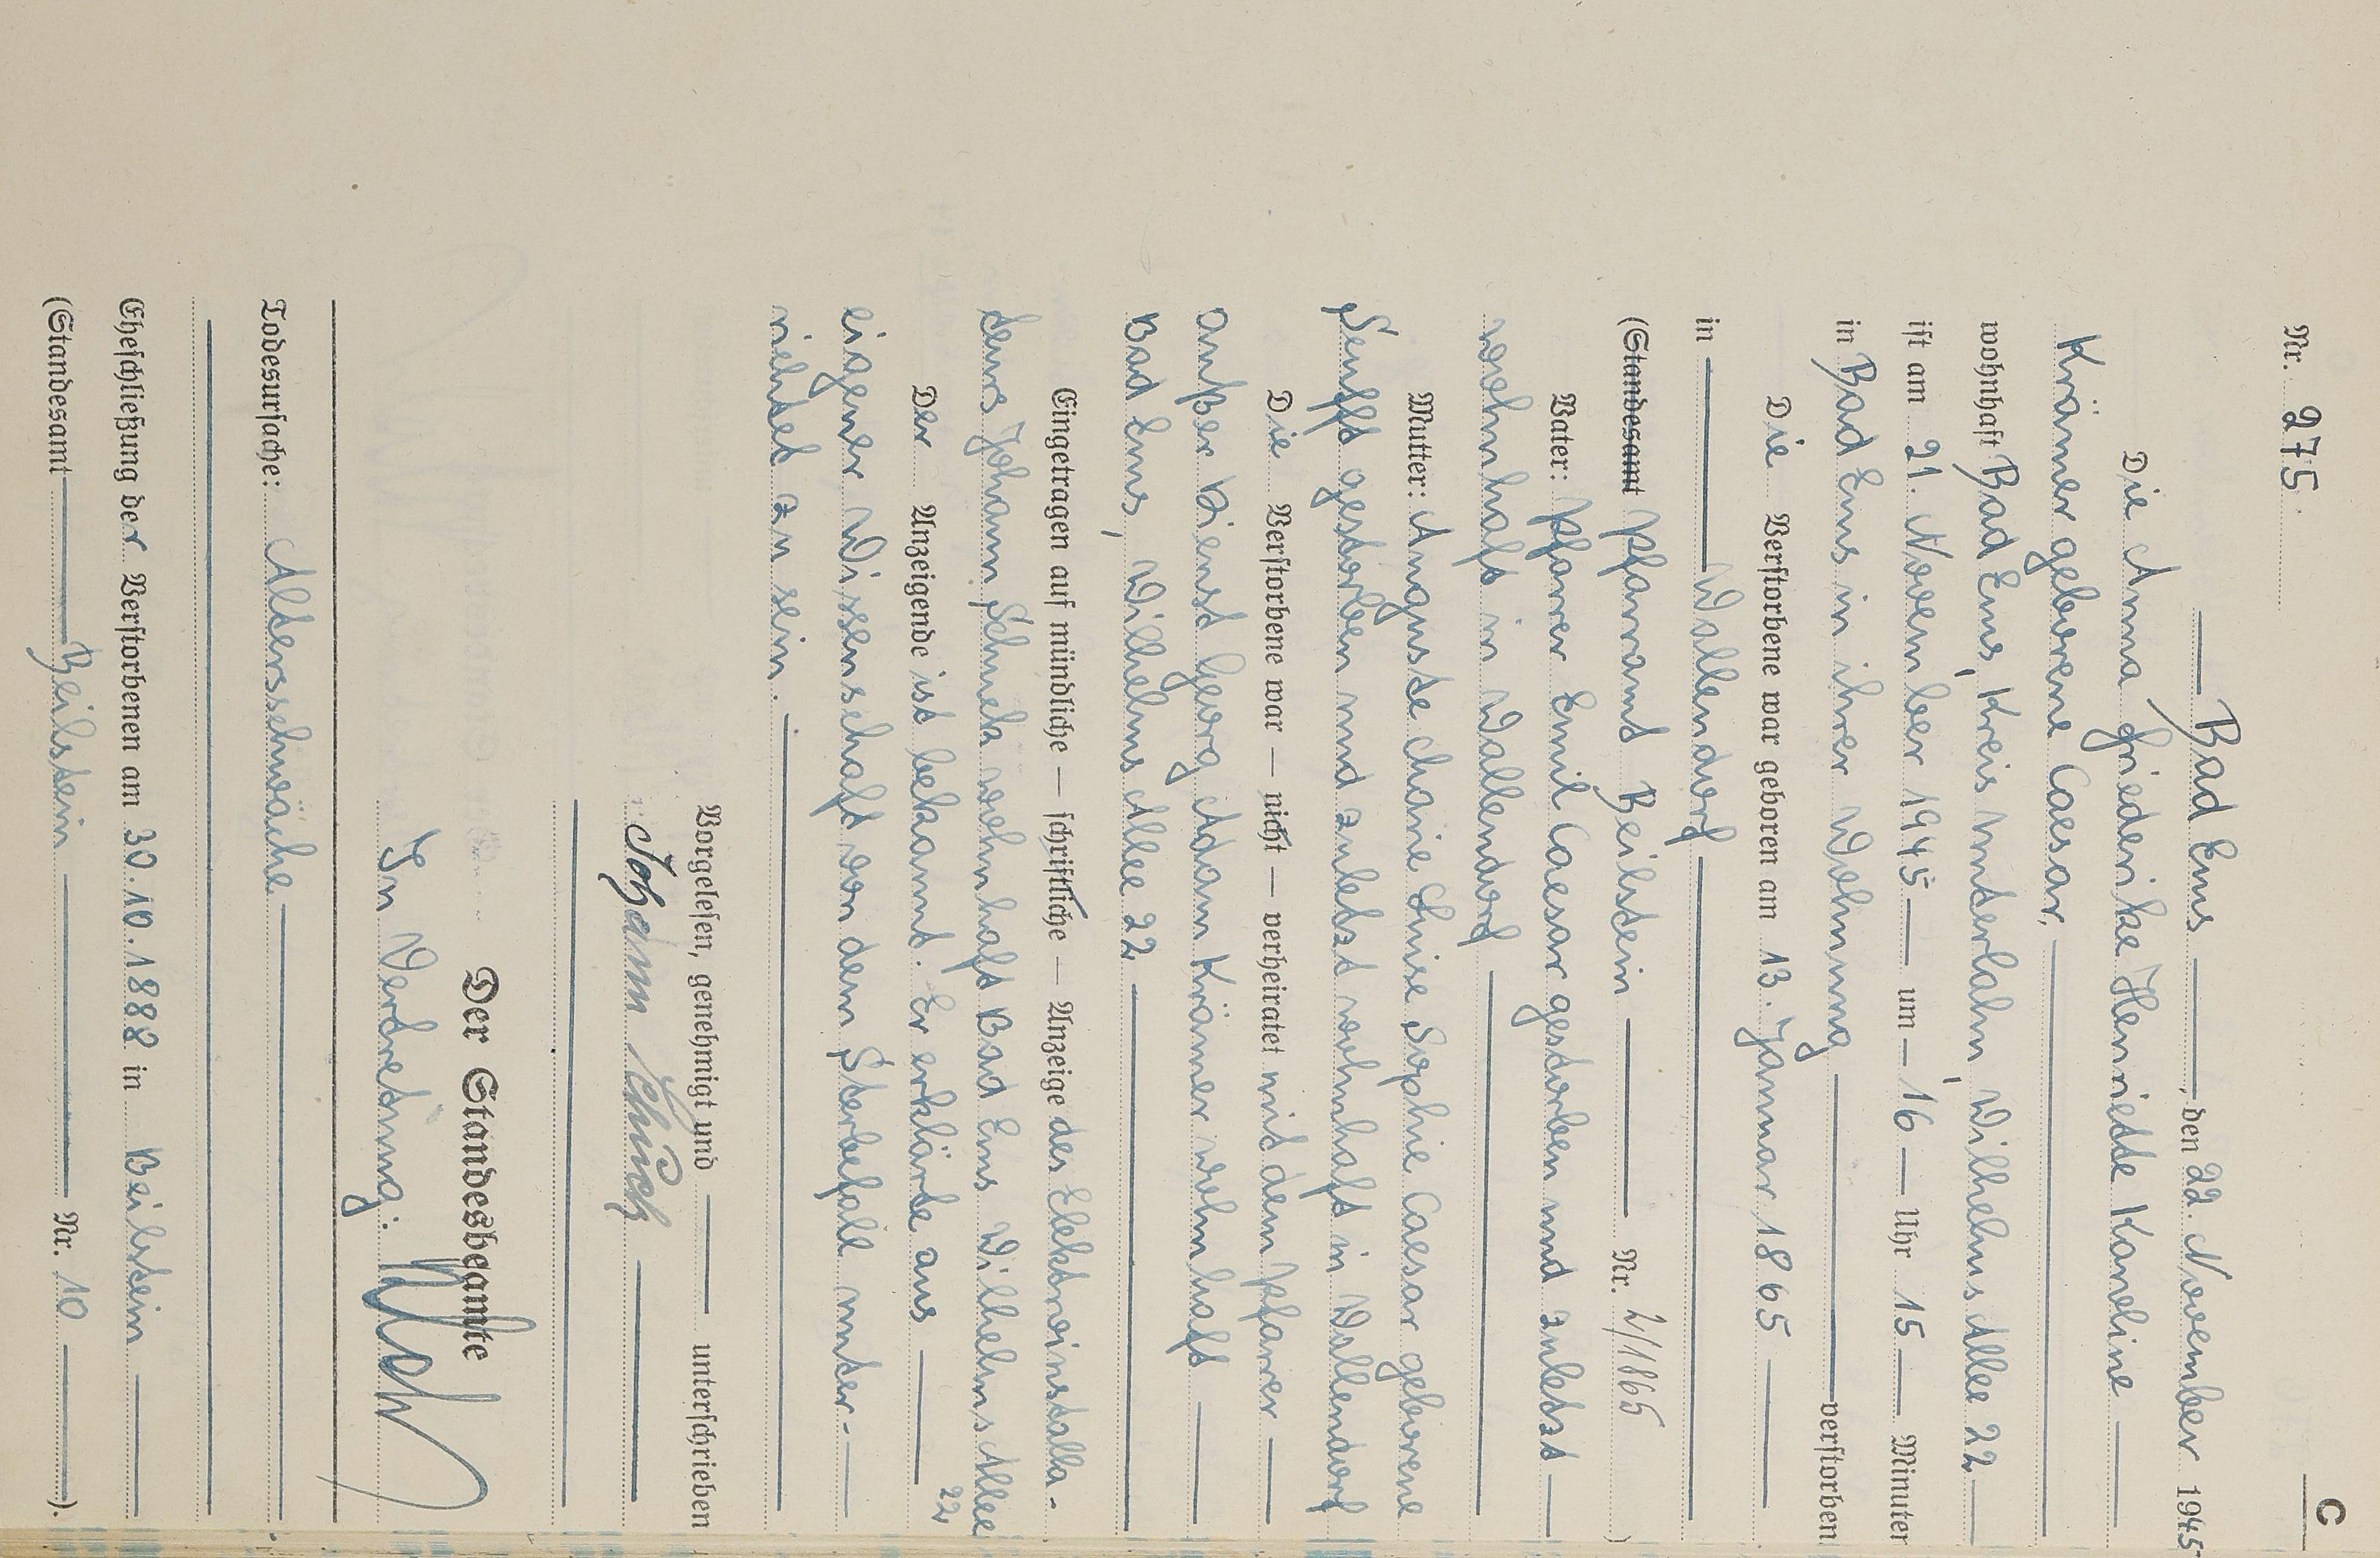 C
Nr. 275
— Bad Ems —, den 22. November 1945
Die Anna Friederike Henriette Karoline —
Krämer geborene Caesar, —
wohnhaft Bad Ems, Kreis Unterlahn, Wilhelms Allee 22 —
ist am 21. November 1945 — um — 16 — Uhr 15 — Minuten
in Bad Ems in ihrer Wohnung — verstorben
Die Verstorbene war geboren am 13. Januar 1865 —
in — Wallendorf —
(Standesamt Pfarramt Beilstein — Nr. 2/1865)
Vater: Pfarrer Emil Caesar gestorben und zuletzt —
wohnhaft in Wallendorf —
Mutter: Auguste Marie Luise Sophie Caesar geborene
Senfft gestorben und zuletzt wohnhaft in Wallendorf
Die Verstorbene war — nicht — verheiratet mit dem Pfarrer —
außer Dienst Georg Adam Krämer wohnhaft —
Bad Ems, Wilhelms Allee 22 —
Eingetragen auf mündliche — schriftliche — Anzeige des Elektroinstalla-
teurs Johann Schuck wohnhaft Bad Ems Wilhelms Allee
22
Der Anzeigende ist bekannt. Er erklärte aus —
eigener Wissenschaft von dem Sterbefall unter- —
richtet zu sein. —
Vorgelesen, genehmigt und — unterschrieben
Johann Schuck —
Der Standesbeamte
In Vertretung:
Todesursache: Altersschwäche —
Eheschließung der Verstorbenen am 30.10.1888 in Beilstein —
(Standesamt — Beilstein — Nr. 10 —).